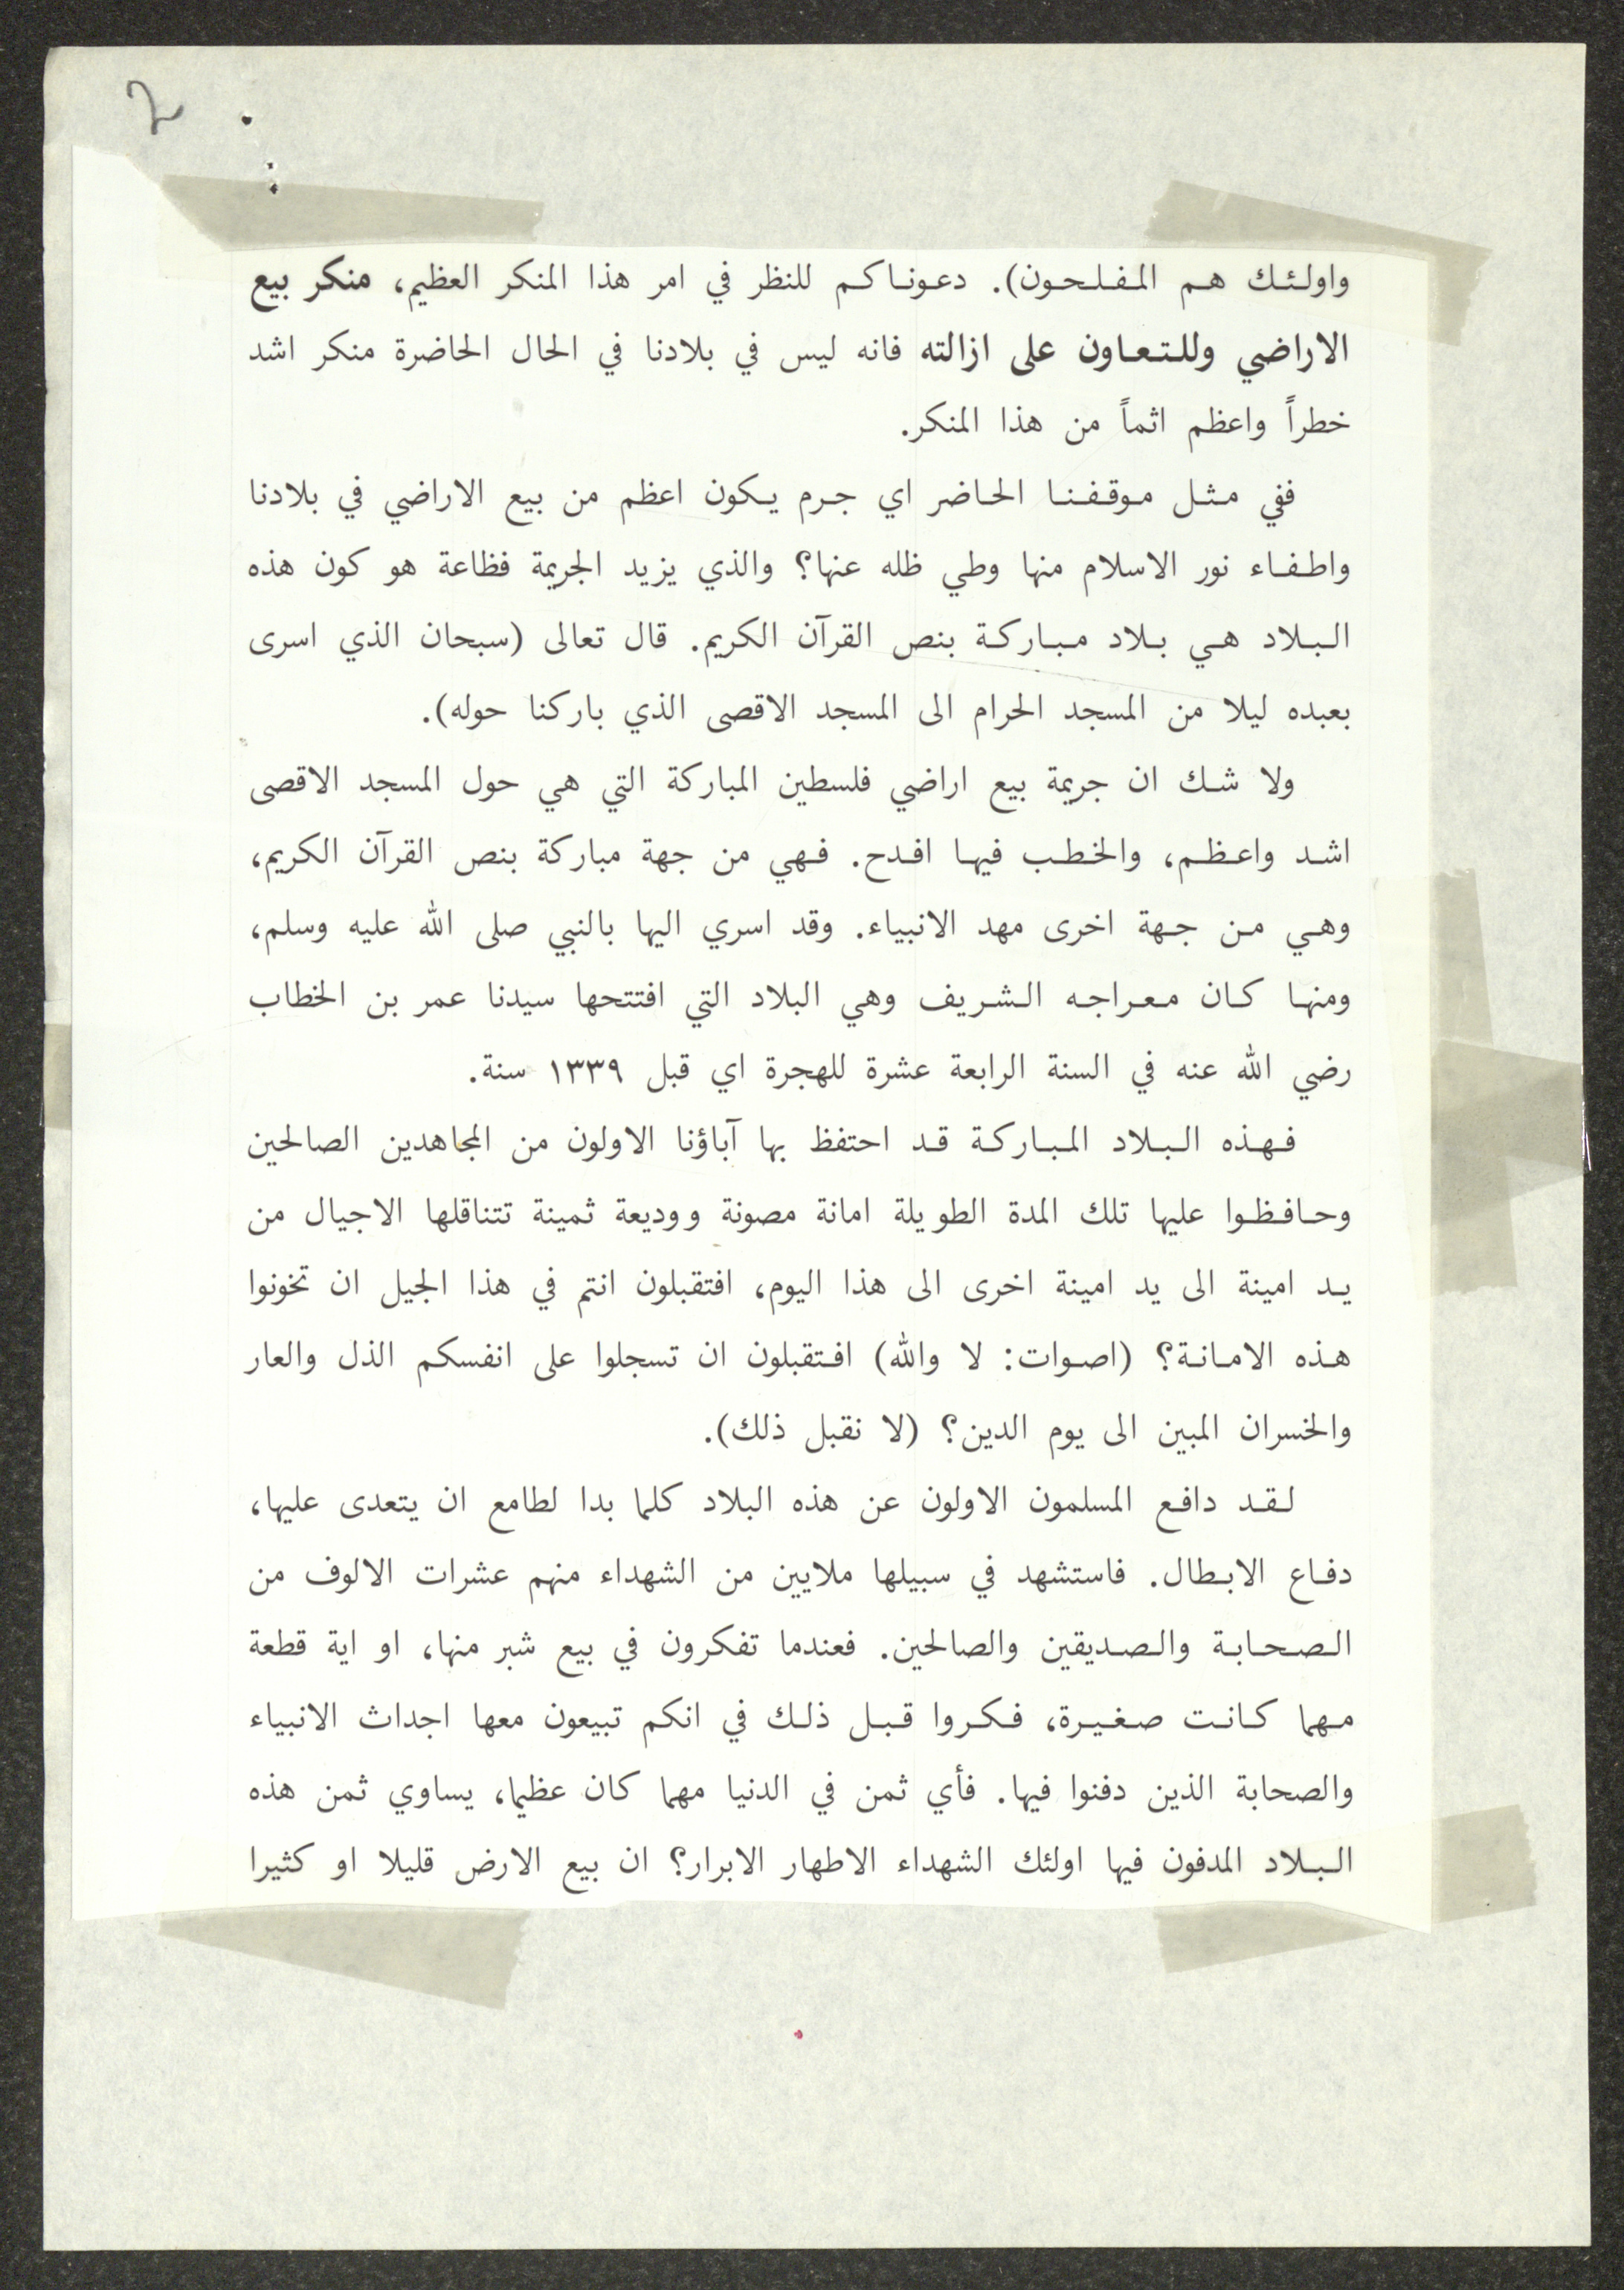 ٢
واولئك هم المفلحون). دعوناكم للنظر في امر هذا المنكر العظيم، منكر بيع
الاراضي وللتعاون على ازالته فانه ليس في بلادنا في الحال الحاضرة منكر اشد
خطراً واعظم اثماً من هذا المنكر.
ففي مثل موقفنا الحاضر اي جرم يكون اعظم من بيع الاراضي في بلادنا
واطفاء نور الاسلام منها وطي ظله عنها؟ والذي يزيد الجريمة فظاعة هو كون هذه
البلاد هي بلاد مباركة بنص القرآن الكريم. قال تعالى (سبحان الذي اسرى
بعبده ليلا من المسجد الحرام الى المسجد الاقصى الذي باركنا حوله).
ولا شك ان جريمة بيع اراضي فلسطين المباركة التي هي حول المسجد الاقصى
اشد واعظم، والخطب فيها افدح. فهي من جهة مباركة بنص القرآن الكريم،
وهي من جهة اخرى مهد الانبياء. وقد اسري اليها بالنبي صلى الله عليه وسلم،
ومنها كان معراجه الشريف وهي البلاد التي افتتحها سيدنا عمر بن الخطاب
رضي الله عنه في السنة الرابعة عشرة للهجرة اي قبل ١٣٣٩ سنة.
فهذه البلاد المباركة قد احتفظ بها آباؤنا الاولون من المجاهدين الصالحين
وحافظوا عليها تلك المدة الطويلة امانة مصونة ووديعة ثمينة تتناقلها الاجيال من
يد امينة الى يد امينة اخرى الى هذا اليوم، افتقبلون انتم في هذا الجيل ان تخونوا
هذه الامانة؟ (اصوات: لا والله) افتقبلون ان تسجلوا على انفسكم الذل والعار
والخسران المبين الى يوم الدين؟ (لا نقبل ذلك).
لقد دافع المسلمون الاولون عن هذه البلاد كلما بدا لطامع ان يتعدى عليها،
دفاع الابطال. فاستشهد في سبيلها ملايين من الشهداء منهم عشرات الالوف من
الصحابة والصديقين والصالحين. فعندما تفكرون في بيع شبر منها، او اية قطعة
مهما كانت صغيرة، فكروا قبل ذلك في انكم تبيعون معها اجداث الانبياء
والصحابة الذين دفنوا فيها. فأي ثمن في الدنيا مهما كان عظيما، يساوي ثمن هذه
البلاد المدفون فيها اولئك الشهداء الاطهار الابرار؟ ان بيع الارض قليلا او كثيرا